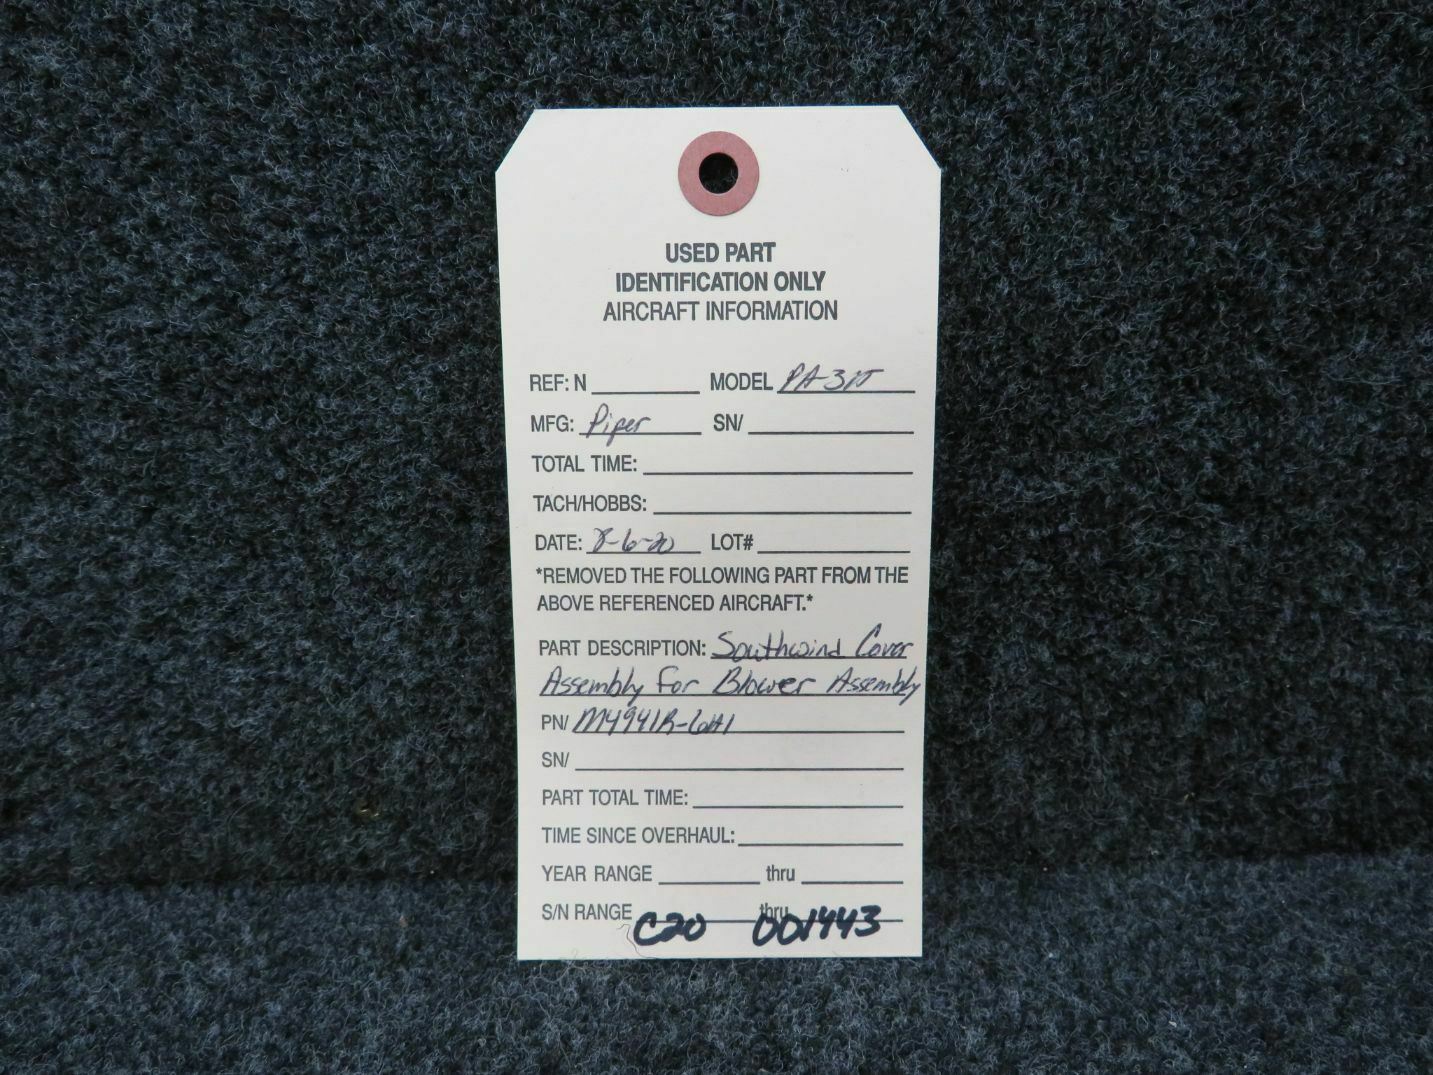 USED PART
IDENTIFICATION ONLY
AIRCRAFT INFORMATION
REF: N MODEL PA-31T
MFG: Piper SN/
TOTAL TIME:
TACH/HOBBS:
DATE: 8-6-20 LOT#
*REMOVED THE FOLLOWING PART FROM THE
ABOVE REFERENCED AIRCRAFT.*
PART DESCRIPTION: Southwind Cover
Assembly For Blower Assembly
PN/
SN/
PART TOTAL TIME:
TIME SINCE OVERHAUL:
YEAR RANGE thru
S/N RANGE thru
C20 001443